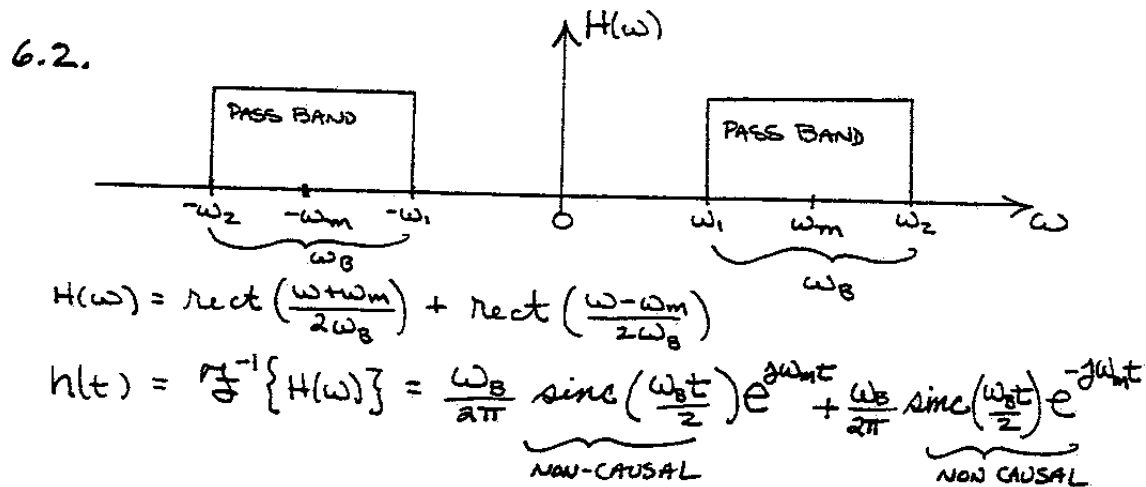 6.2.
H(ω)
PASS BAND
PASS BAND
-ω₂ -ωm -ω₁ 0 ω₁ ωm ω₂ ω
ωB
ωB
H(ω) = rect((ω+ωm)/(2ωB)) + rect((ω-ωm)/(2ωB))
h(t) = ℱ⁻¹{H(ω)} = ωB/2π sinc(ωBt/2)e^{jωmt} + ωB/2π sinc(ωBt/2)e^{-jωmt}
NON-CAUSAL NON CAUSAL